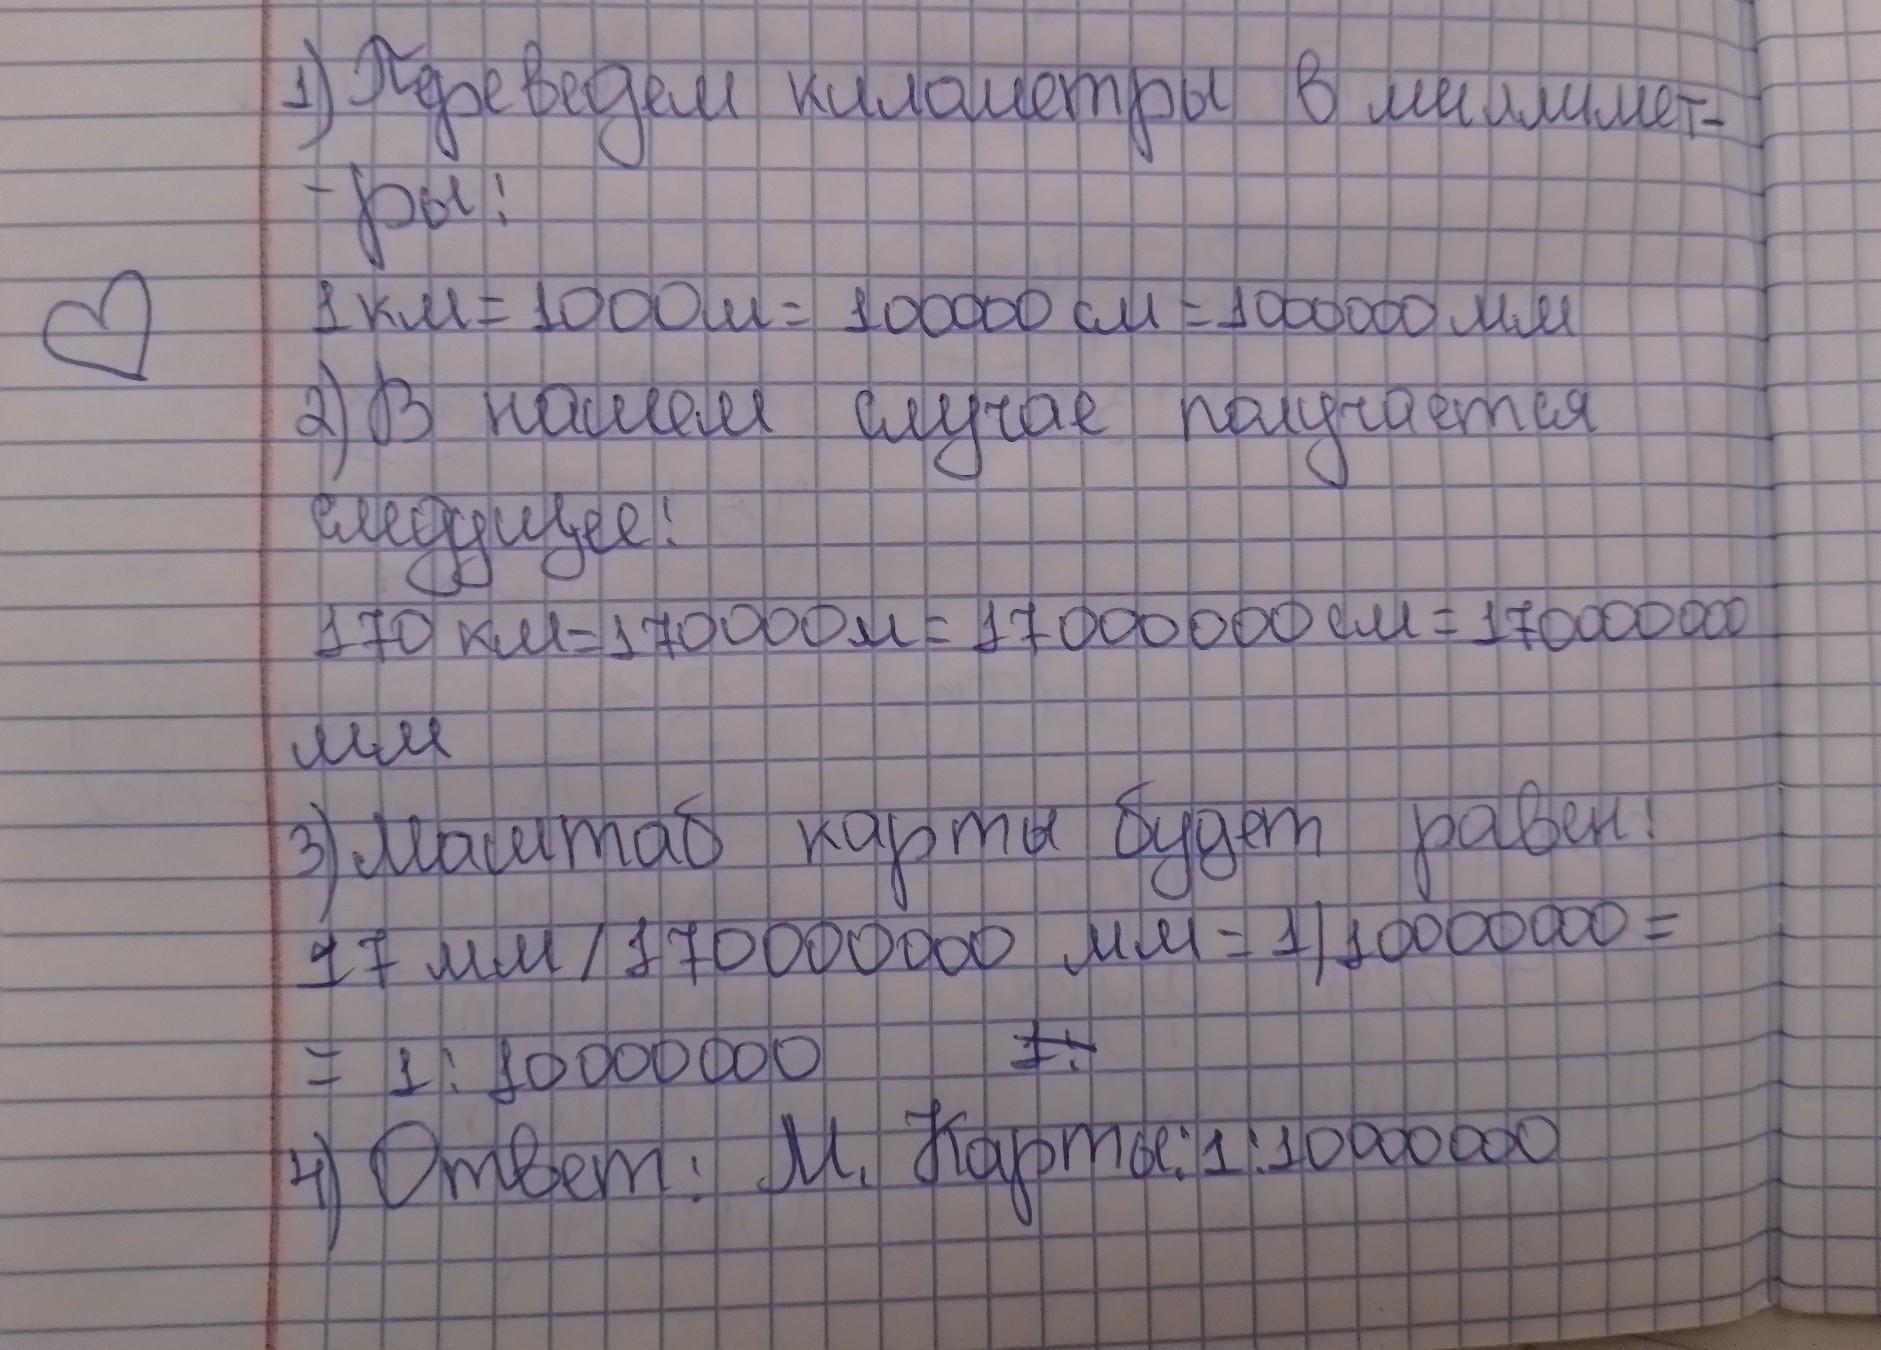 1) Переведем километры в миллимет-
-ры:
1 км = 1000м = 100000 см = 1000000 мм
2) В нашем случае получается
следущее:
170 км = 170000м = 17000000 см = 170000000
мм
3) Масштаб карты будет равен:
17 мм / 170000000 мм = 1/10000000 =
= 1 : 10000000 1:
4) Ответ: М. Карты: 1:10000000